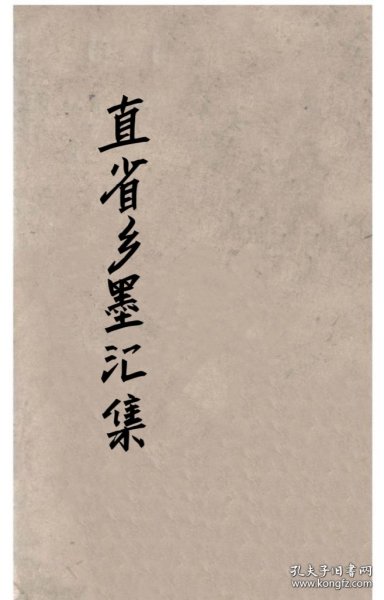 直省乡墨汇集
孔夫子旧书网
www.kongfz.com